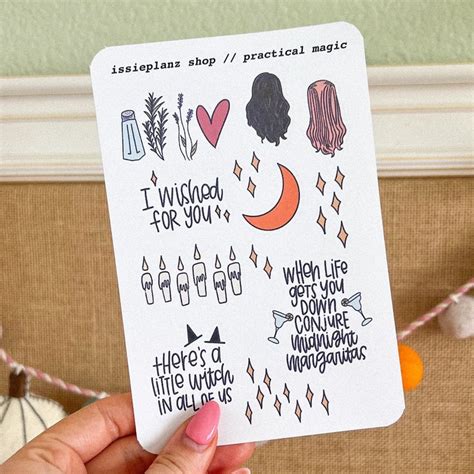 issieplanz shop // practical magic
I WISHED
FOR YOU
WHEN LIFE
GETS YOU
DOWN
CONJURE
MIDNIGHT
MARGARITAS
THERE'S A
LITTLE WITCH
IN ALL OF US